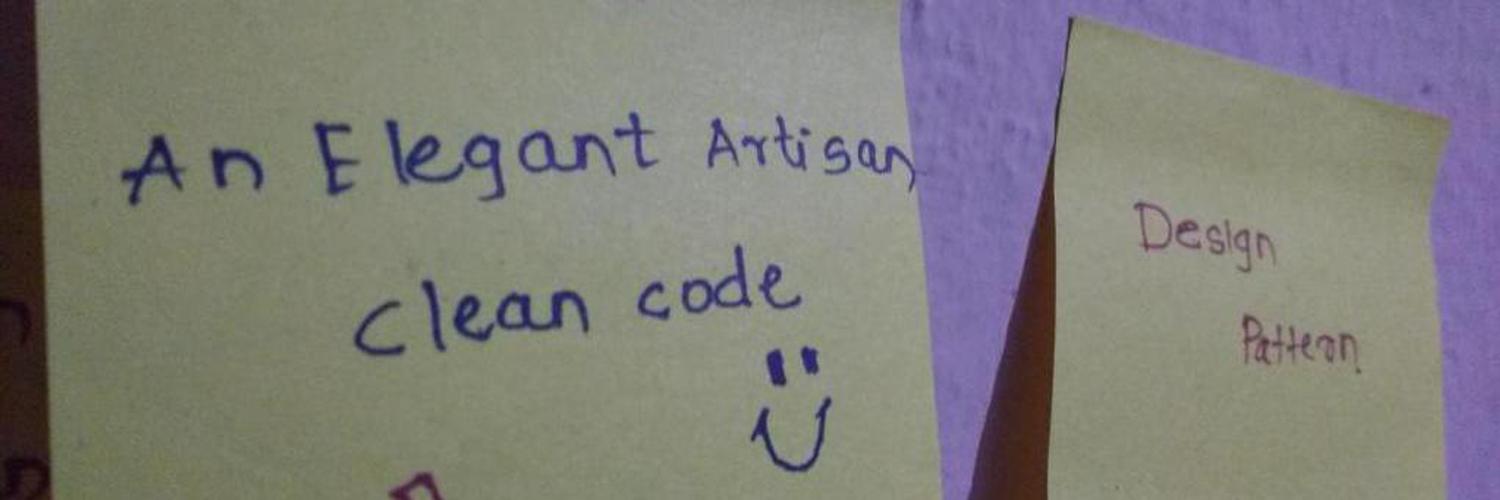 An Elegant Artisan
clean code
Design
Pattern